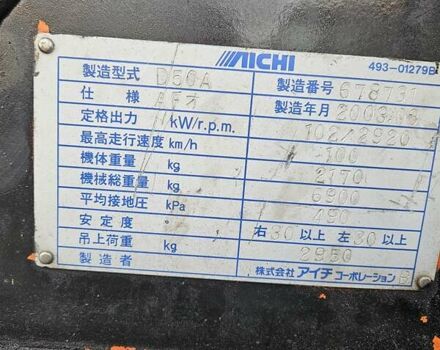 AICHI 493-01279B
製造型式 D50A 製造番号 678731
仕様 製造年月 2003
定格出力 kW/r.p.m. 102/2920
最高走行速度 km/h 100
機体重量 kg 2170
機械総重量 kg 6900
平均接地圧 kPa 490
安定度 ° 右30以上 左30以上
吊上荷重 kg 2950
製造者 株式会社 アイチ コーポレーション